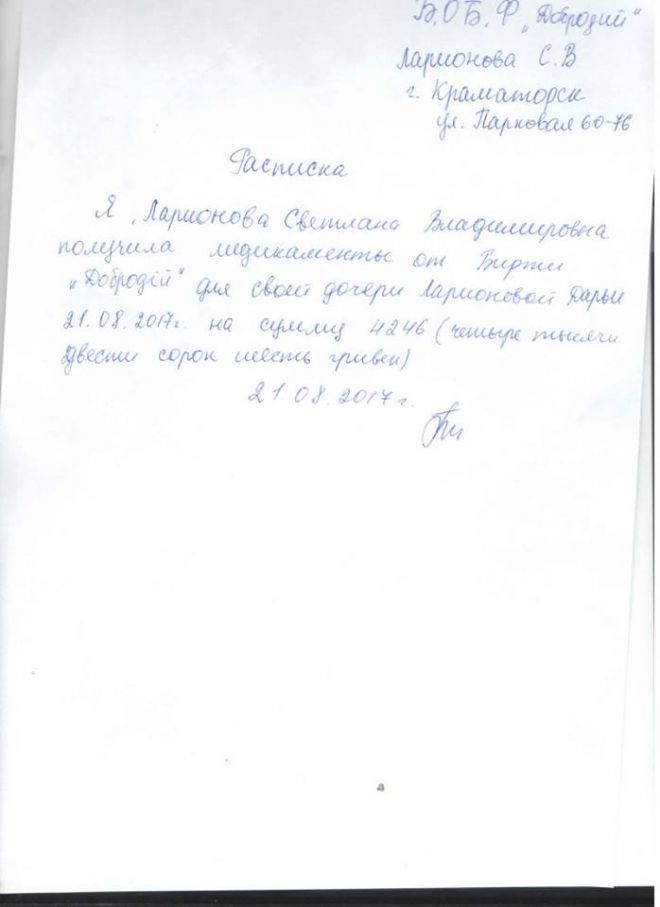 В.О.Б.Ф „Добродий"
Ларионова С.В
г. Краматорск
ул. Парковая 60-76
Расписка
Я, Ларионова Светлана Владимировна
получила медикаменты от Биржи
„Добродій" для своей дочери Ларионовой Дарьи
21.08.2017г. на сумму 4246 (четыре тысячи
двести сорок шесть гривен)
21.08.2017г.